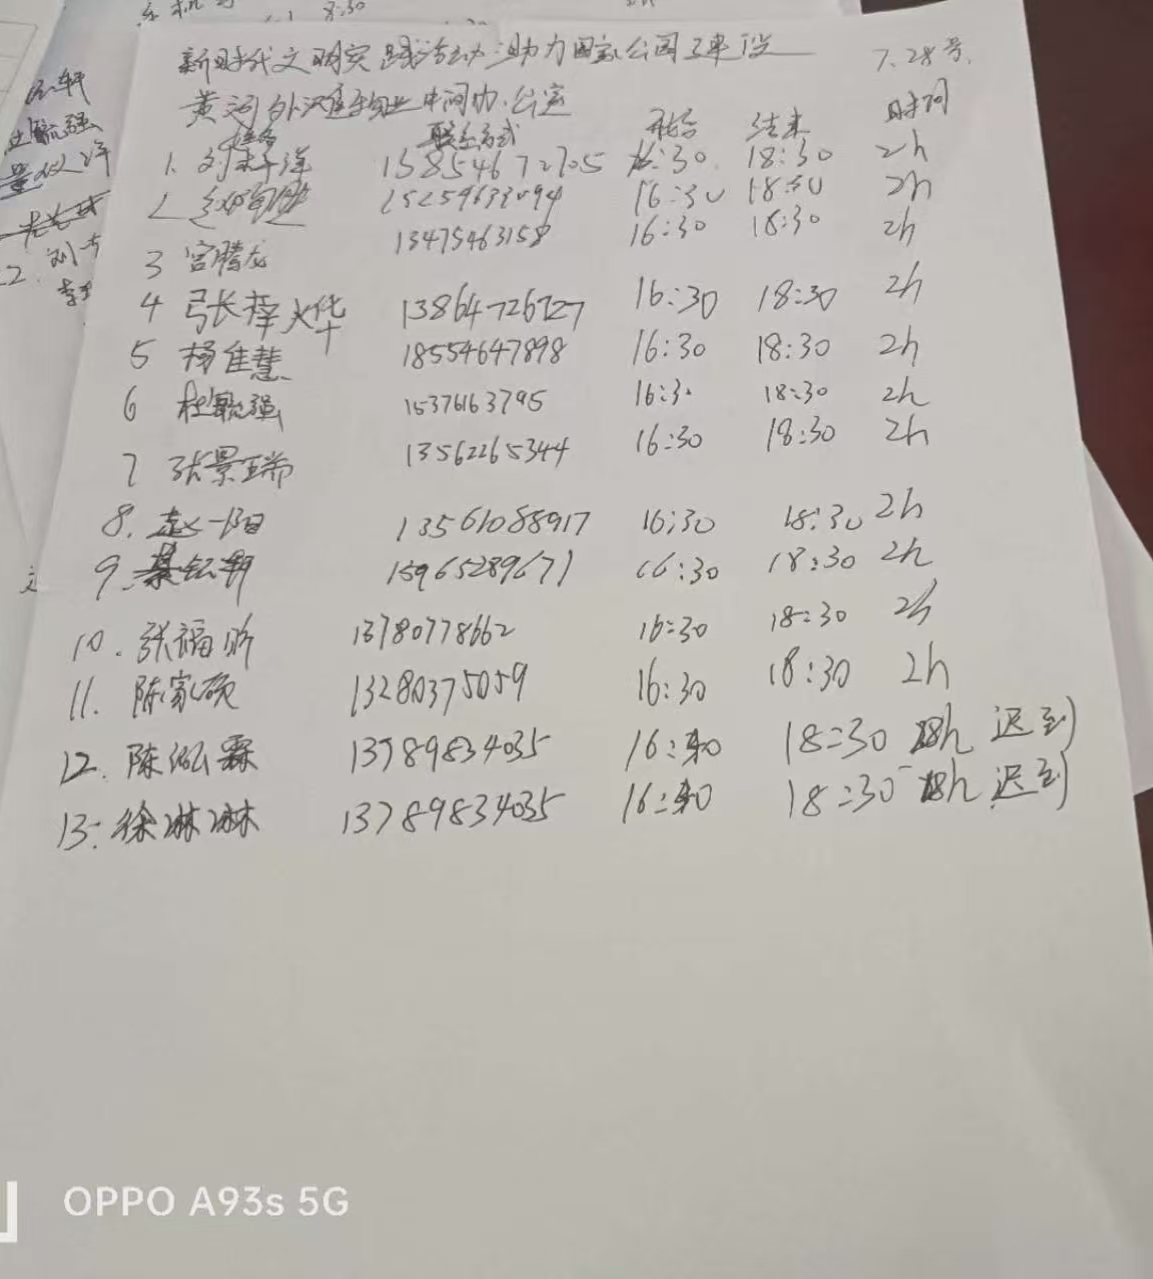 8:30
新时代文明实践活动 助力国家公园建设 7.28号.
黄河外滩 中间办公室
姓名 联系方式 开始 结束 时间
1. 刘 洋 15854672705 16:30 18:30 2h
2 16:30 18:30 2h
3 宫腾龙 13475463158 16:30 18:30 2h
4 张梓烨 13864726727 16:30 18:30 2h
5 杨佳慧 18554647898 16:30 18:30 2h
6 杜毓强 15376163795 16:30 18:30 2h
7 张景瑞 13562265344 16:30 18:30 2h
8. 赵一阳 13561088917 16:30 18:30 2h
9. 綦钰轩 15965289671 16:30 18:30 2h
10. 张福昕 13780778662 16:30 18:30 2h
11. 陈家硕 13280375059 16:30 18:30 2h
12. 陈泓霖 13789834035 16:40 18:30 1.8h 迟到
13. 徐琳琳 13789834035 16:40 18:30 1.8h 迟到
OPPO A93s 5G